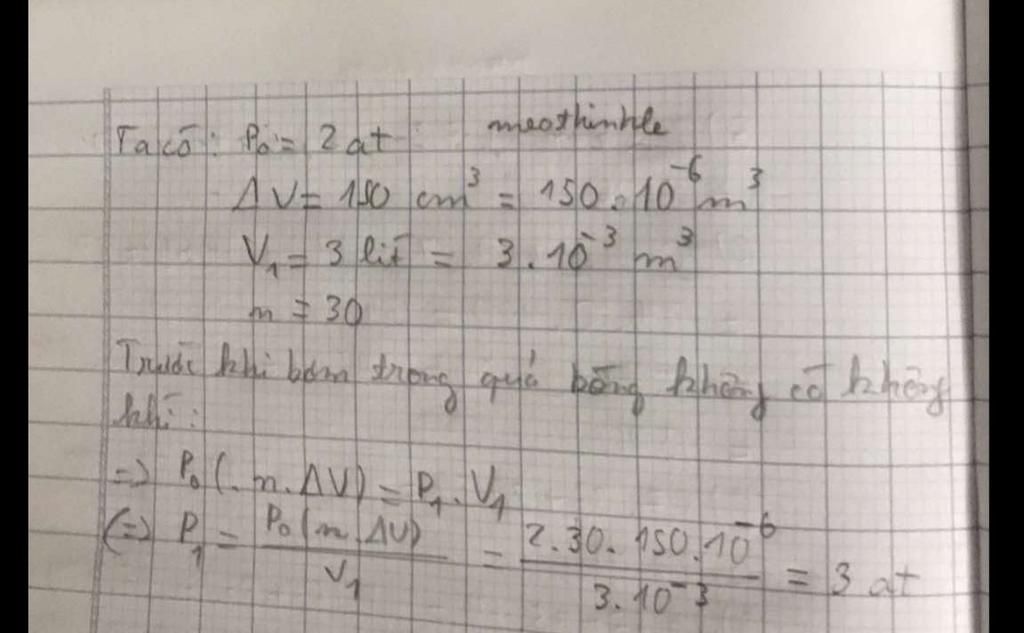 Ta có: P₀ = 2 at meothinhle
ΔV = 150 cm³ = 150.10⁻⁶ m³
V₁ = 3 lít = 3.10⁻³ m³
n = 30
Trước khi bơm trong quả bóng không có không
khí:
=> P₀(.n.ΔV) = P₁.V₁
(=) P₁ = P₀(n.ΔV) / V₁ = 2.30.150.10⁻⁶ / 3.10⁻³ = 3 at